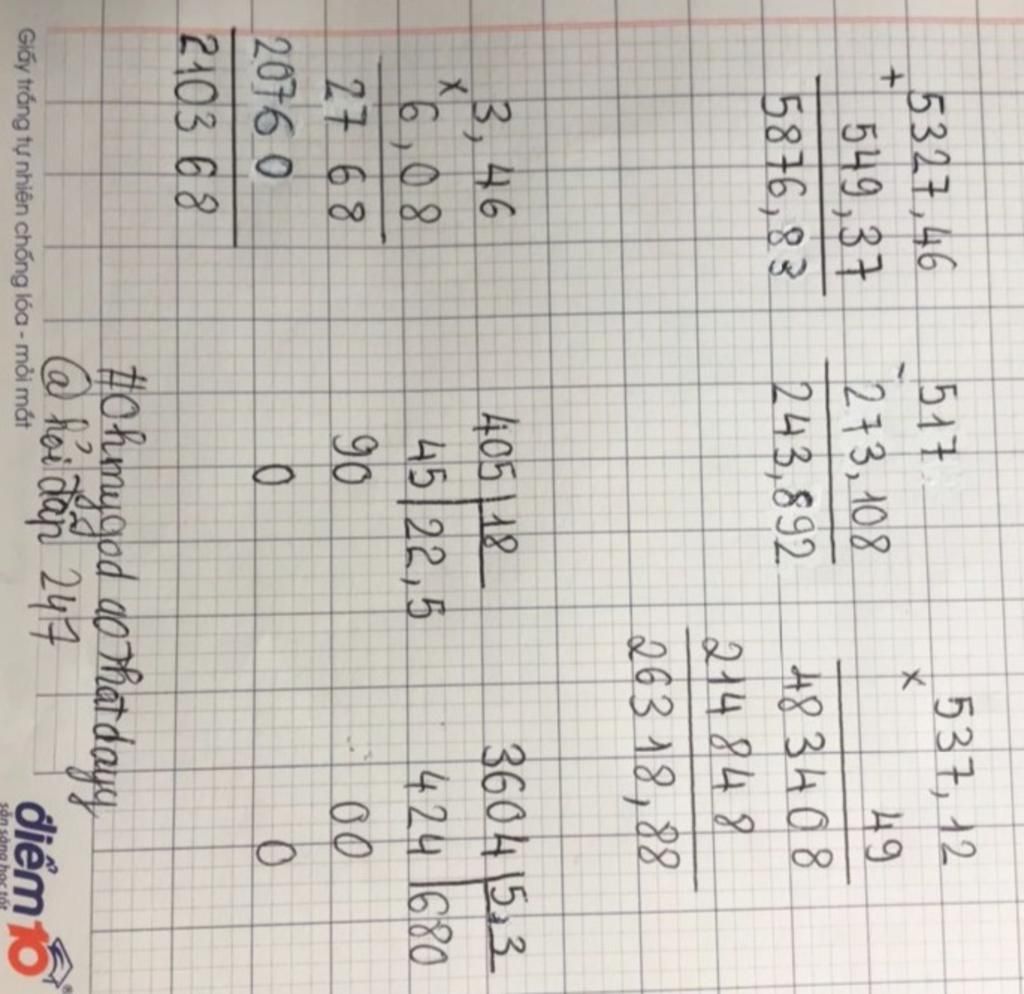 5327,46
+
549,37
5876,83
517
-
273,108
243,892
537,12
×
49
483408
214848
26318,88
3,46
×
6,08
2768
20760
210368
405 18
45 22,5
90
0
3604 5,3
424 680
00
0
#Ohmygod aoThatdayy
@ hỏi đáp 247
Giấy trắng tự nhiên chống lóa - mỏi mắt
điểm10
sẵn sàng học tốt